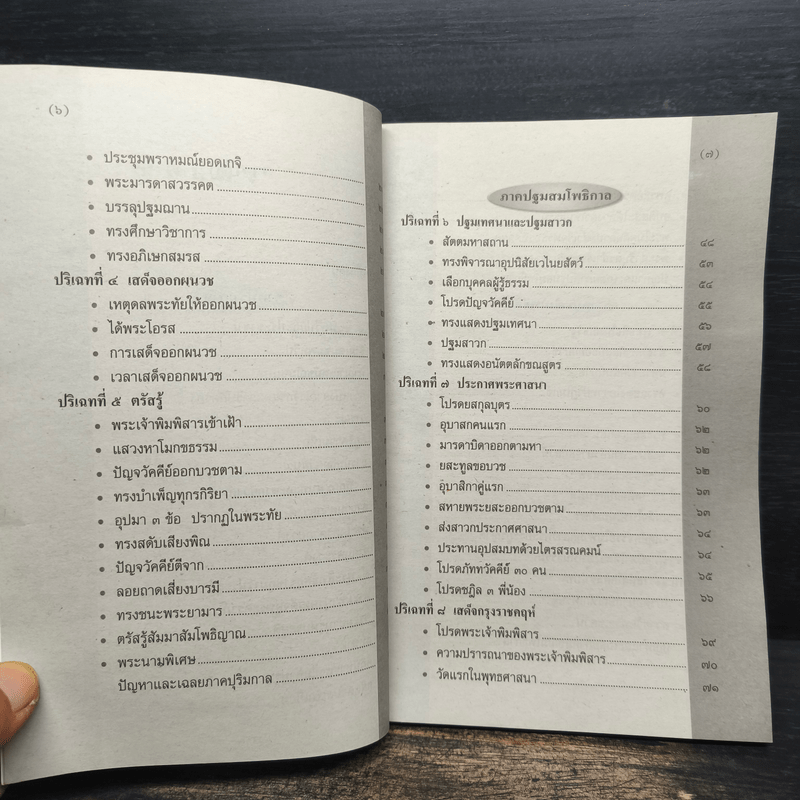 (๖)
• ประชุมพราหมณ์ยอดเกจิ
• พระมารดาสวรรคต
• บรรลุปฐมฌาน
• ทรงศึกษาวิชาการ
• ทรงอภิเษกสมรส
ปริเฉทที่ ๔ เสด็จออกผนวช
• เหตุดลพระทัยให้ออกผนวช
• ได้พระโอรส
• การเสด็จออกผนวช
• เวลาเสด็จออกผนวช
ปริเฉทที่ ๕ ตรัสรู้
• พระเจ้าพิมพิสารเข้าเฝ้า
• แสวงหาโมกขธรรม
• ปัญจวัคคีย์ออกบวชตาม
• ทรงบำเพ็ญทุกรกิริยา
• อุปมา ๓ ข้อ ปรากฏในพระทัย
• ทรงสดับเสียงพิณ
• ปัญจวัคคีย์ตีจาก
• ลอยถาดเสี่ยงบารมี
• ทรงชนะพระยามาร
• ตรัสรู้สัมมาสัมโพธิญาณ
• พระนามพิเศษ
ปัญหาและเฉลยภาคปุริมกาล
(๗)
ภาคปฐมสมโพธิกาล
ปริเฉทที่ ๖ ปฐมเทศนาและปฐมสาวก
• สัตตมหาสถาน ๔๘
• ทรงพิจารณาอุปนิสัยเวไนยสัตว์ ๕๓
• เลือกบุคคลผู้รู้ธรรม ๕๔
• โปรดปัญจวัคคีย์ ๕๕
• ทรงแสดงปฐมเทศนา ๕๖
• ปฐมสาวก ๕๗
• ทรงแสดงอนัตตลักขณสูตร ๕๘
ปริเฉทที่ ๗ ประกาศพระศาสนา
• โปรดยสกุลบุตร ๖๐
• อุบาสกคนแรก ๖๒
• มารดาบิดาออกตามหา ๖๒
• ยสะทูลขอบวช ๖๒
• อุบาสิกาคู่แรก ๖๓
• สหายพระยสะออกบวชตาม ๖๓
• ส่งสาวกประกาศศาสนา ๖๔
• ประทานอุปสมบทด้วยไตรสรณคมน์ ๖๔
• โปรดภัททวัคคีย์ ๓๐ คน ๖๕
• โปรดชฎิล ๓ พี่น้อง ๖๖
ปริเฉทที่ ๘ เสด็จกรุงราชคฤห์
• โปรดพระเจ้าพิมพิสาร ๖๙
• ความปรารถนาของพระเจ้าพิมพิสาร ๗๐
• วัดแรกในพุทธศาสนา ๗๑